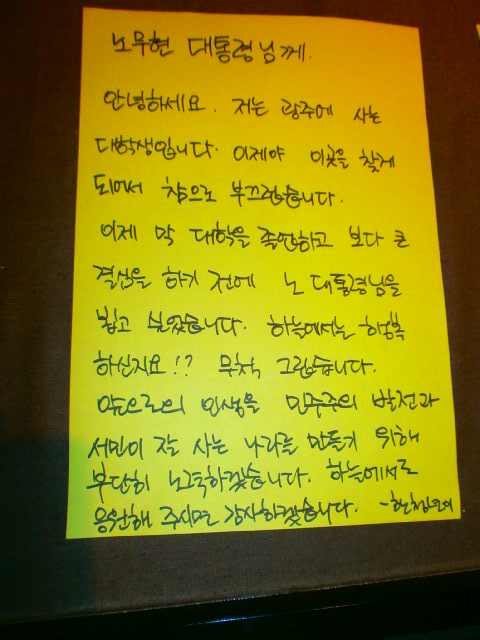 노무현 대통령님께.
안녕하세요. 저는 광주에 사는
대학생입니다. 이제야 이곳을 찾게
되어서 참으로 부끄럽습니다.
이제 막 대학을 졸업하고 보다 큰
결심을 하기 전에 노 대통령님을
뵙고 싶었습니다. 하늘에서는 행복
하신지요!? 무척 그립습니다.
앞으로의 인생을 민주주의 발전과
서민이 잘 사는 나라를 만들기 위해
부단히 노력하겠습니다. 하늘에서도
응원해 주시면 감사하겠습니다.